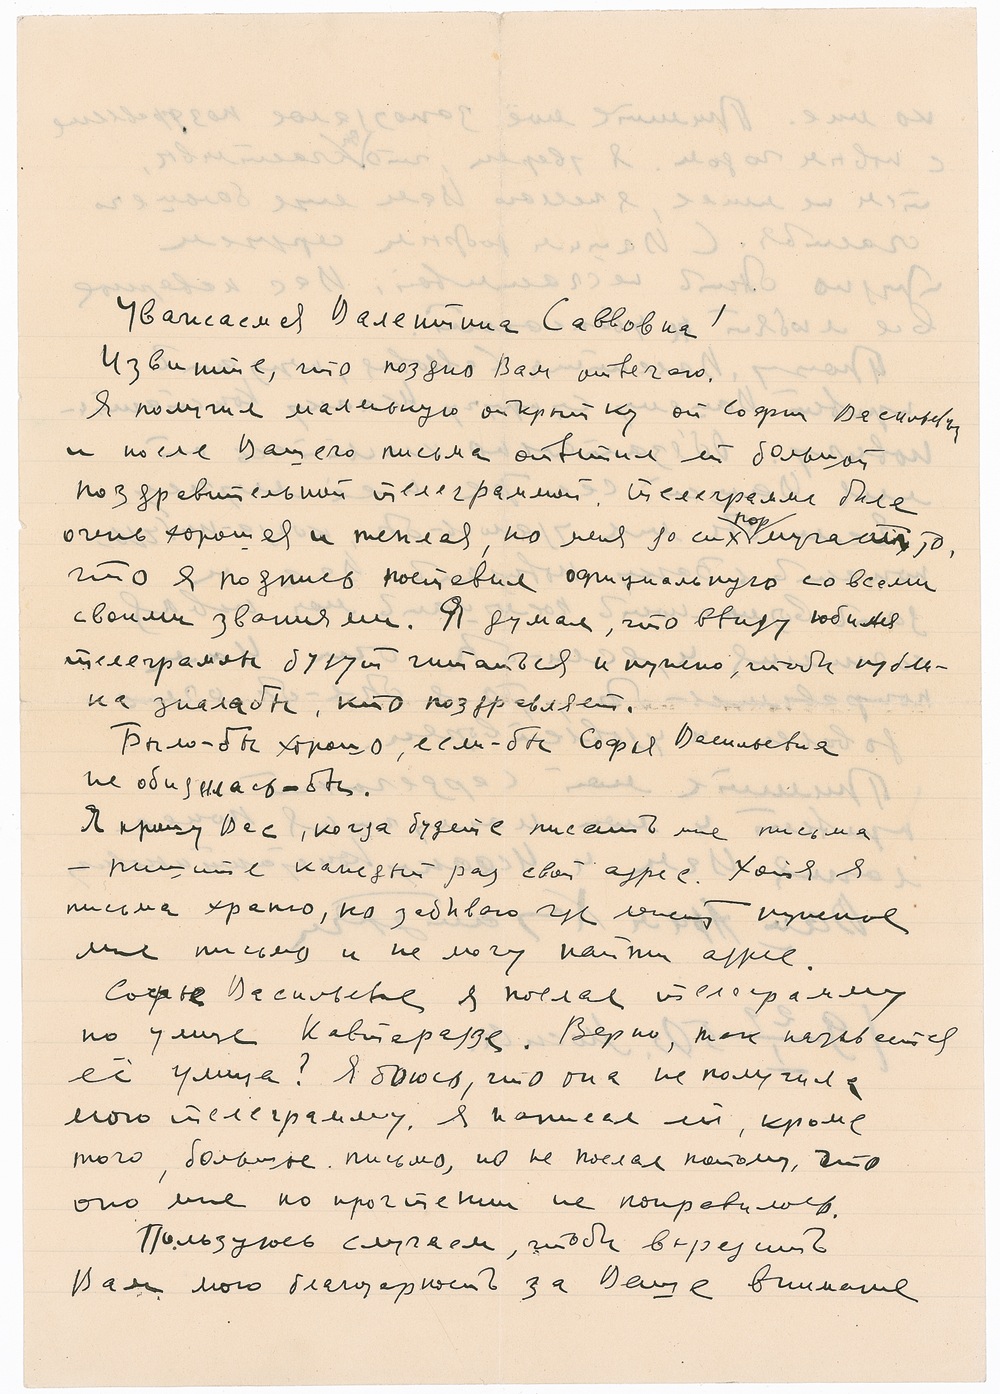 Уважаемая Валентина Саввовна!
Извините, что поздно Вам отвечаю.
Я получил маленькую открытку от Софьи Васильевны
и после Вашего письма ответил ей большой
поздравительной телеграммой. Телеграмма была
очень хорошая и теплая, но меня до сих пор мучает то,
что я подпись поставил официальную со всеми
своими званиями. Я думал, что ввиду юбилея
телеграммы будут читаться и нужно, чтобы публи-
ка знала бы, кто поздравляет.
Было-бы хорошо, если-бы Софья Васильевна
не обиделась-бы.
Я прошу Вас, когда будете писать мне письма
– пишите каждый раз свой адрес. Хотя я
письма храню, но забываю где лежит нужное
мне письмо и не могу найти адрес.
Софье Васильевне я послал телеграмму
по улице Кавтарадзе. Верно, так называется
её улица? Я боюсь, что она не получила
мою телеграмму. Я написал ей, кроме
того, большое письмо, но не послал потому, что
оно мне по прочтении не понравилось.
Пользуюсь случаем, чтобы выразить
Вам мою благодарность за Ваше внимание